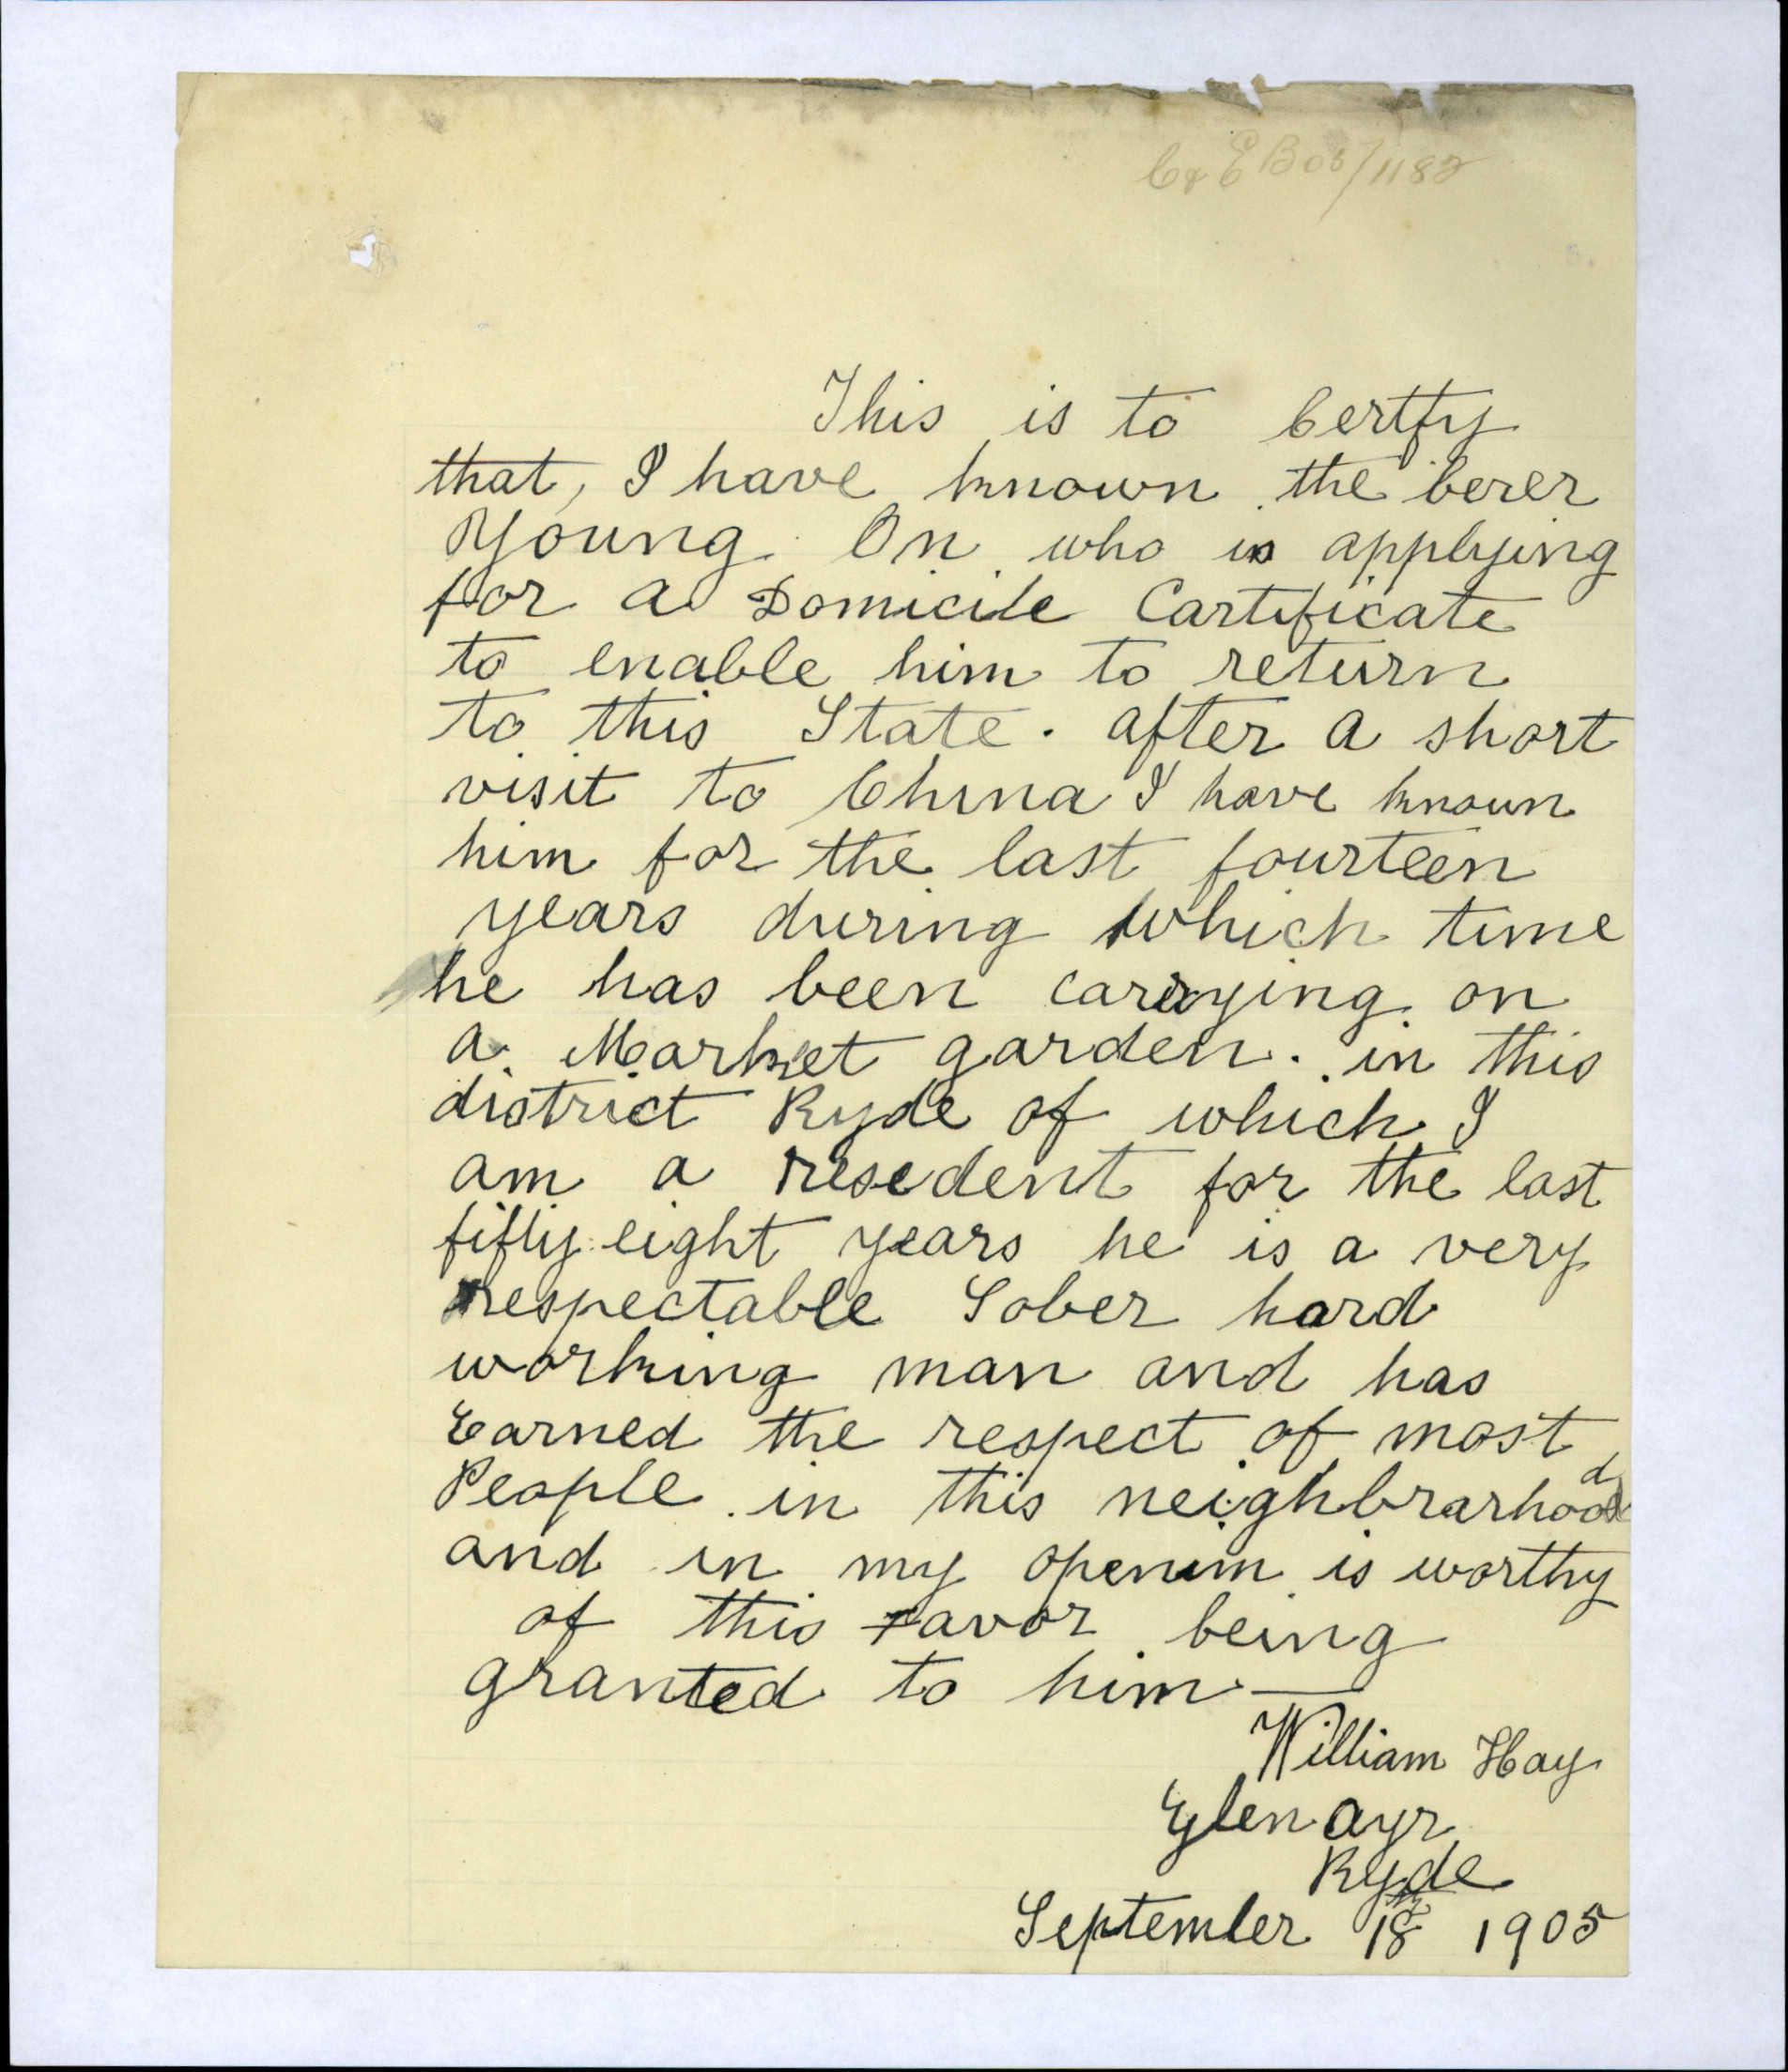 C&E B 05/1182
This is to Certfy
that, I have known the berer
Young On who is applying
for a Domicile Cartificate
to enable him to return
to this State. after a short
visit to China I have known
him for the last fourteen
years during which time
he has been carrying on
a Market garden. in this
district Ryde of which I
am a resedent for the last
fifty eight years he is a very
respectable Sober hard
working man and has
Earned the respect of most
People in this neighbrarhood
and in my openim is worthy
of this Favor being
granted to him —
William Hay
Glen Ayr
Ryde
September 18th 1905